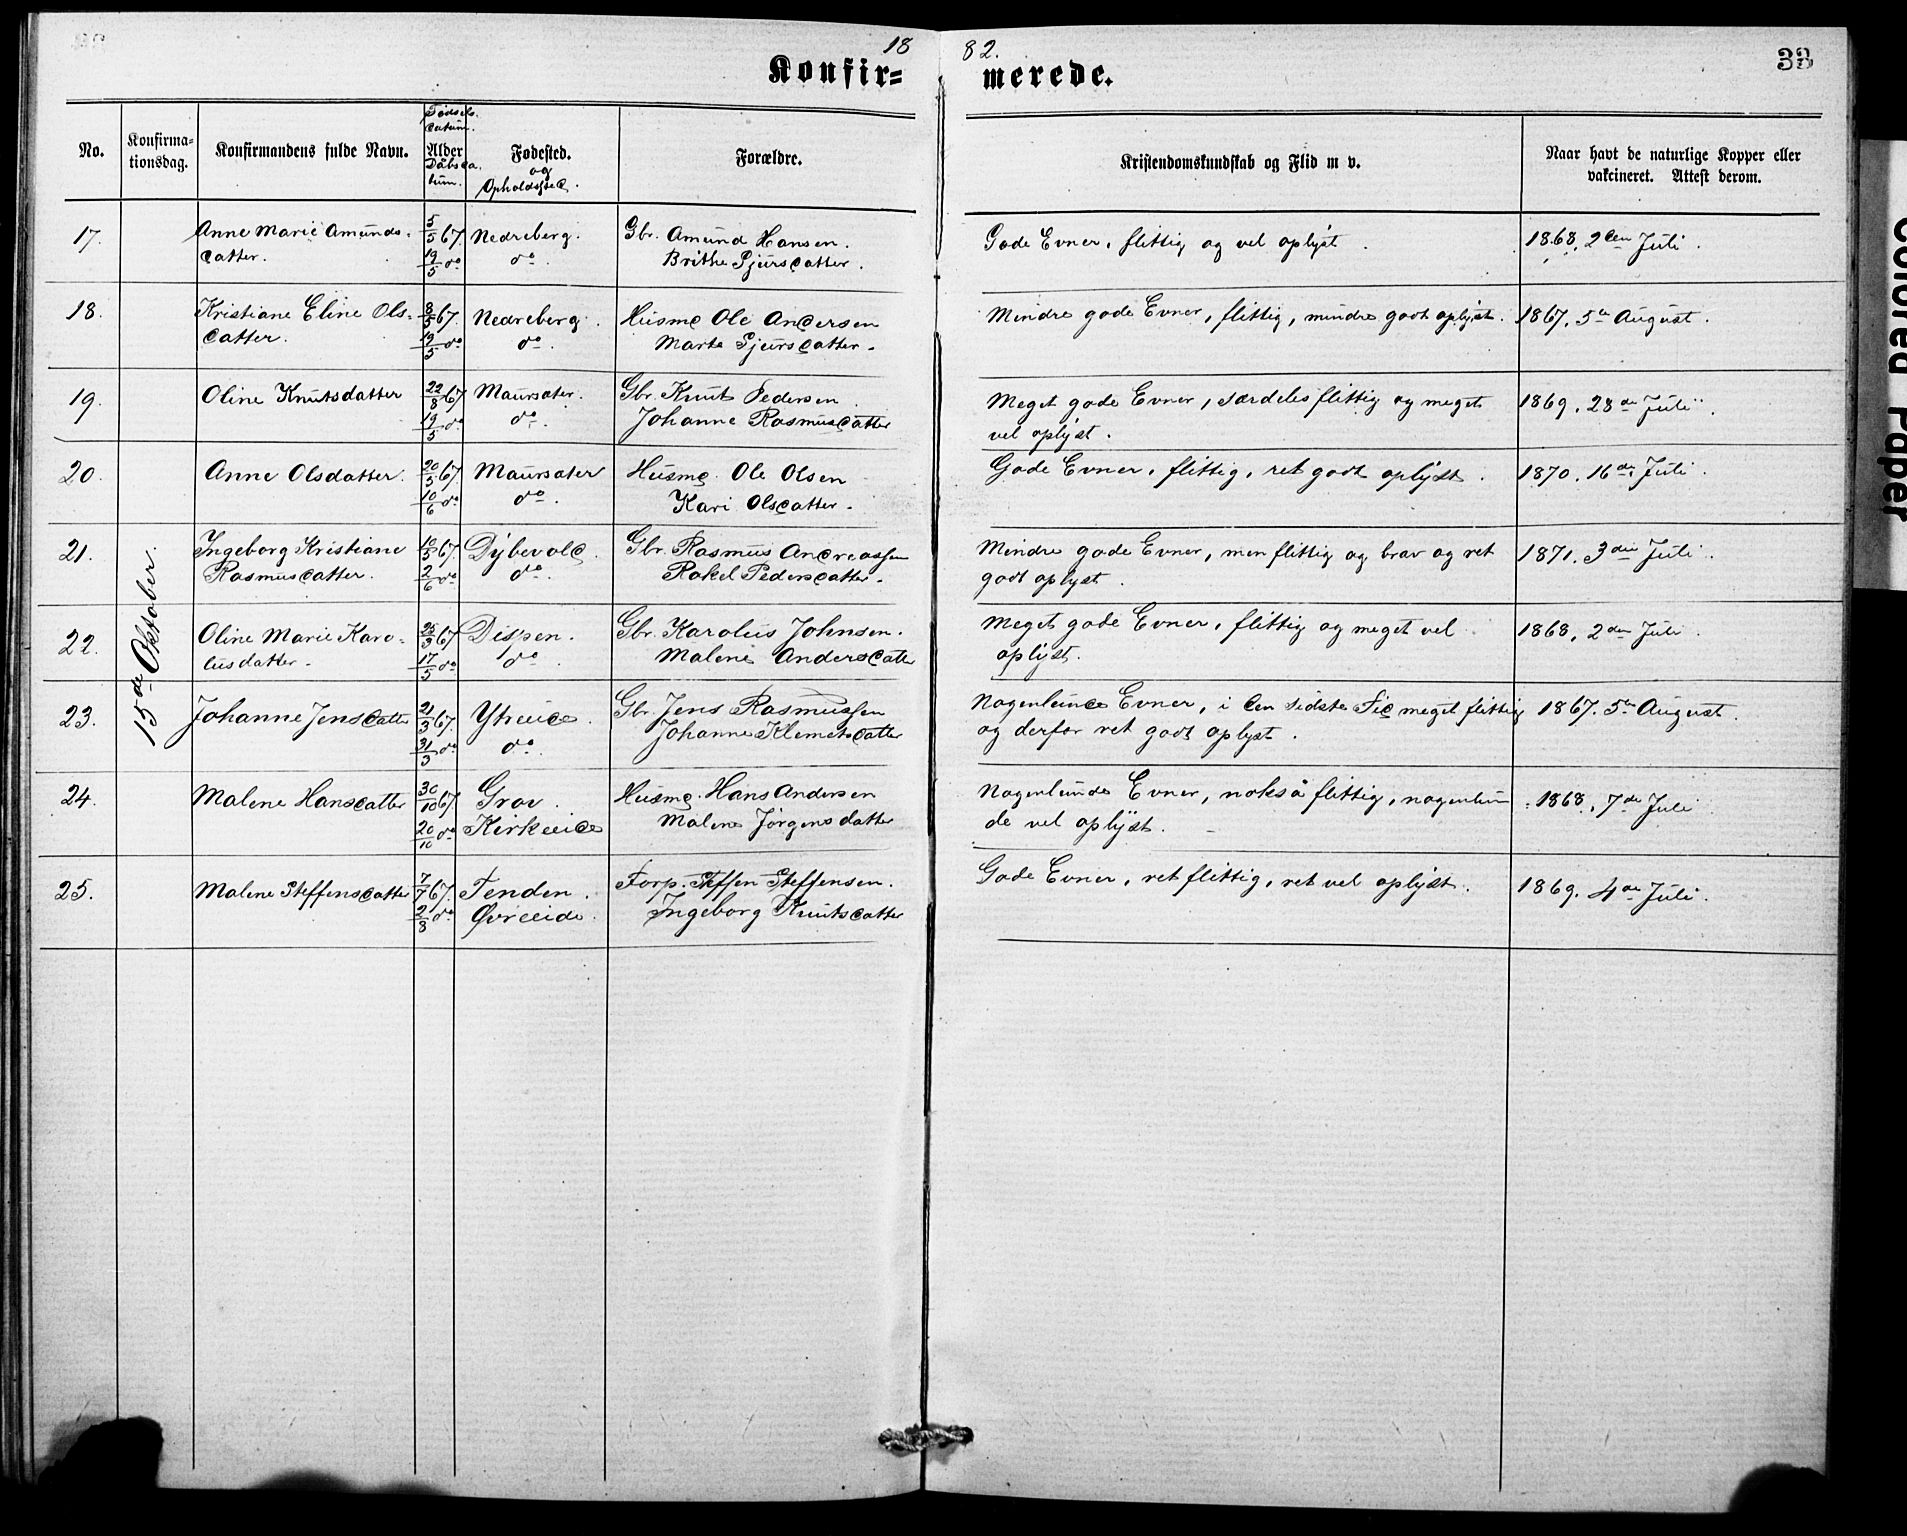 18 82.
33
Konfir= merede.
No.
Konfirma-
tionsdag.
Konfirmandens fulde Navn.
Fødsels-
datum.
Alder
Dåbsda-
tum.
Fødested.
og
Opholdssted.
Forældre.
Kristendomskundskab og Flid m v.
Naar havt de naturlige Kopper eller
vakcineret. Attest derom.
15de Oktober.
17. Anne Marie Amunds- 5/5 67. Nedreberg. Gbr. Amund Hansen. Gode Evner, flittig og vel oplyst. 1868, 2den Juli.
datter. 19/5 do do. Brithe Sjursdatter.
18. Kristiane Eline Ols- 8/5 67. Nedreberg. Husmd Ole Andersen Mindre gode Evner, flittig, mindre godt oplyst. 1867. 5te August.
datter. 19/5 do do. Marte Sjursdatter.
19. Oline Knutsdatter 22/8 67 Maursæter. Gbr. Knut Pedersen Meget gode Evner, særdeles flittig og meget 1869, 28de Juli.
19/5 do do. Johanne Rasmusdatter vel oplyst.
20. Anne Olsdatter. 20/5 67. Maursæter Husmd. Ole Olsen Gode Evner, flittig, ret godt oplyst. 1870. 16de Juli.
10/6 do do. Kari Olsdatter.
21. Ingeborg Kristiane 10/5 67. Dybevold. Gbr. Rasmus Andreassen Mindre gode Evner, men flittig og brav og ret 1871. 3die Juli.
Rasmusdatter. 2/6 do do. Rakel Pedersdatter. godt oplyst.
22. Oline Marie Karo- 25/3 67 Dispen. Gbr. Karolus Johnsen. Meget gode Evner, flittig og meget vel 1868, 2den Juli.
lusdatter. 17/5 do do. Malene Andersdatter oplyst.
23. Johanne Jensdatter 21/3 67. Ytreeide. Gbr. Jens Rasmussen Nogenlunde Evner, i den sidste Tid meget flittig 1867. 5te August.
31/3 do do. Johanne Klemetsdatter og derfor ret godt oplyst.
24. Malene Hansdatter 30/10 67. Grov. Husmd. Hans Andersen Nogenlunde Evner, nokså flittig, nogenlun- 1868, 7de Juli
20/10 do Kirkeeide Malene Jørgensdatter de vel oplyst.
25. Malene Steffensdatter 7/7 67. Tenden. Forp. Steffen Steffensen. Gode Evner, ret flittig, ret vel oplyst. 1869. 4de Juli.
2/8 do. Øvreeide. Ingeborg Knutsdatter
Colored Paper